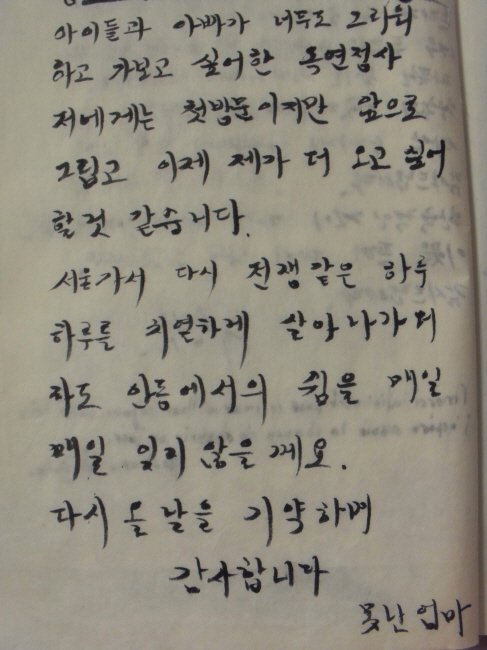 아이들과 아빠가 너무도 그리워
하고 가보고 싶어한 옥연정사
저에게는 첫방문이지만 앞으로
그립고 이제 제가 더 오고 싶어
할것 같습니다.
서울가서 다시 전쟁같은 하루
하루를 치열하게 살아나가며
라도 안동에서의 쉼을 매일
매일 잊지 않을께요.
다시 올 날을 기약하며
감사합니다
못난 엄마